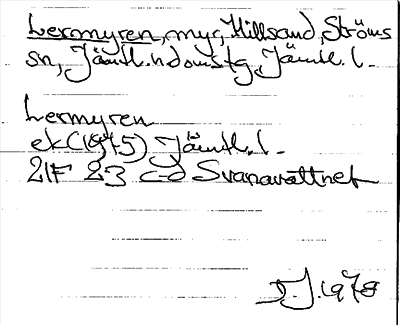 Lermyren, myr, Hillsand, Ströms
sn, Jämtl.ndomsfg, Jämtl. l.
Lermyren
ek(1975) Jämtl. l.
21F 23 c-d Svanavattnet
D.J. 1978